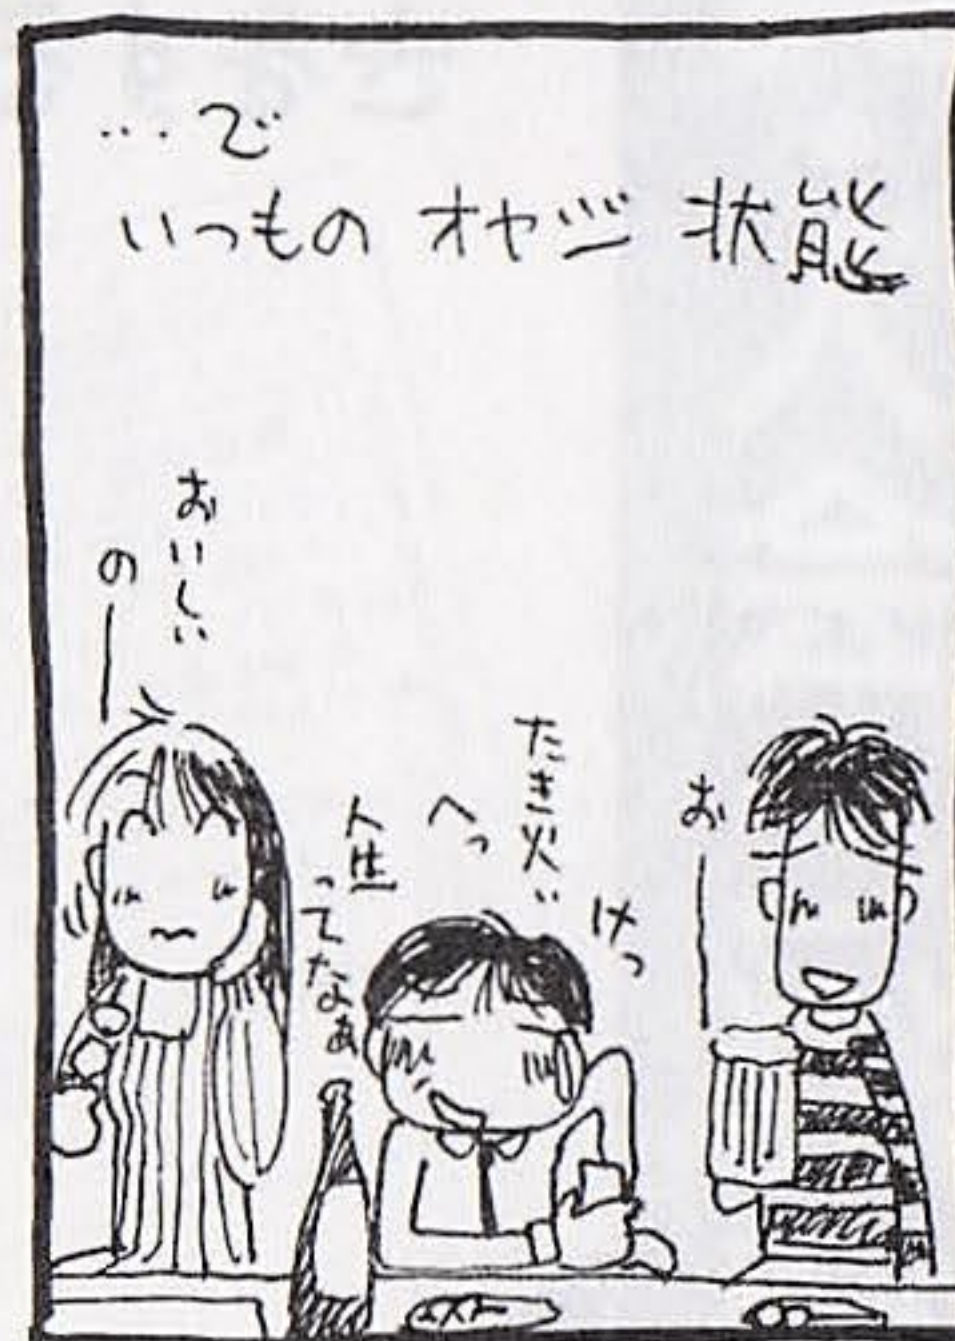 …で
いつもの オヤジ 状態
おー
けっ
たき火ぃ
へっ
人生
ってなぁ
おいしい
のー